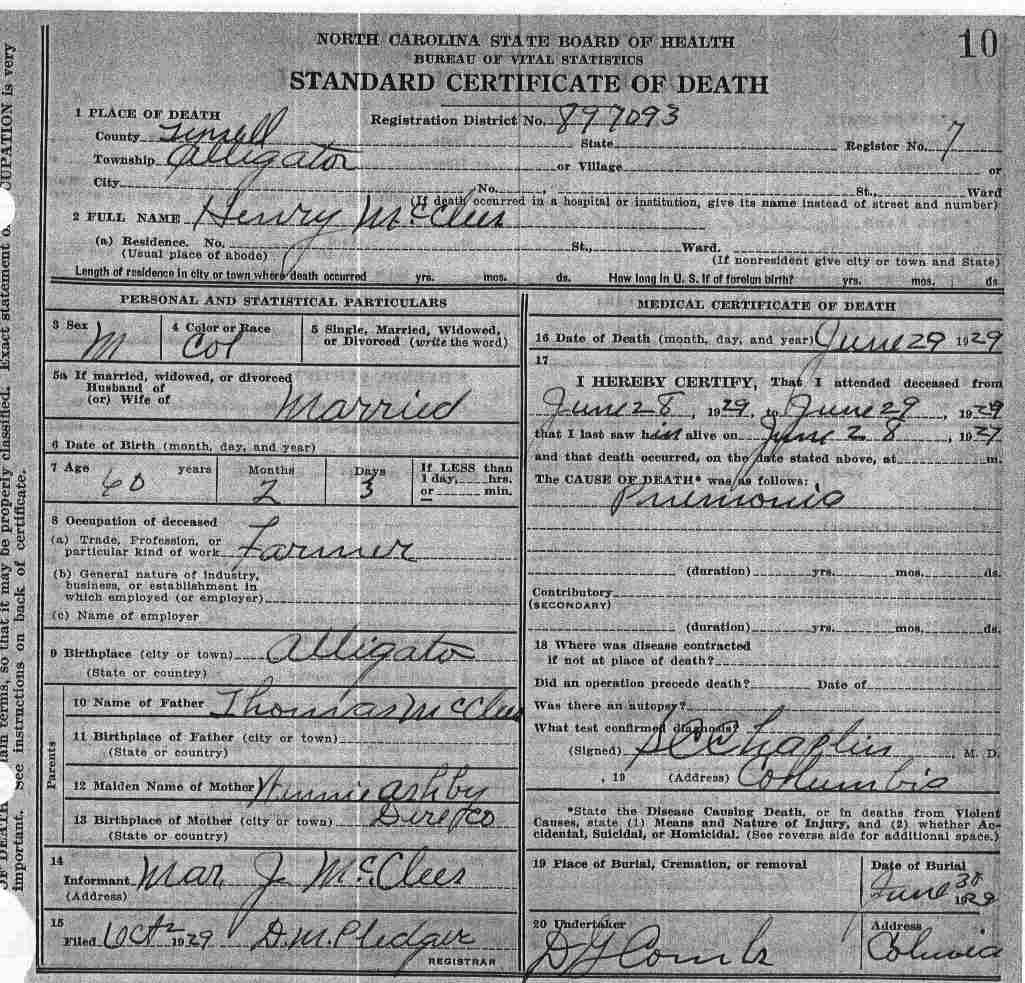 NORTH CAROLINA STATE BOARD OF HEALTH
BUREAU OF VITAL STATISTICS
STANDARD CERTIFICATE OF DEATH
10
1 PLACE OF DEATH
Registration District No. 897093
County
State
Register No. 7
Township Alligator
or Village
or
City
No.
St.,
Ward
(If death occurred in a hospital or institution, give its name instead of street and number)
2 FULL NAME Henry McClees
(a) Residence. No.
St.,
Ward.
(Usual place of abode)
(If nonresident give city or town and State)
Length of residence in city or town where death occurred yrs. mos. ds. How long in U. S. if of foreign birth? yrs. mos. ds
PERSONAL AND STATISTICAL PARTICULARS
3 Sex
M
4 Color or Race
Col
5 Single, Married, Widowed,
or Divorced (write the word)
5a If married, widowed, or divorced
Husband of
(or) Wife of
Married
6 Date of Birth (month, day, and year)
7 Age 60 years
Months
2
Days
3
If LESS than
1 day, hrs.
or min.
8 Occupation of deceased
(a) Trade, Profession, or
particular kind of work Farmer
(b) General nature of industry,
business, or establishment in
which employed (or employer)
(c) Name of employer
9 Birthplace (city or town) Alligator
(State or country)
Parents
10 Name of Father Thomas McClees
11 Birthplace of Father (city or town)
(State or country)
12 Maiden Name of Mother Winnie Ashby
13 Birthplace of Mother (city or town)
(State or country)
14
Informant Mar. J. McClees
(Address)
15
Filed Oct 2 1929 D. M. Pledger
REGISTRAR
MEDICAL CERTIFICATE OF DEATH
16 Date of Death (month, day, and year) June 29 1929
17
I HEREBY CERTIFY, That I attended deceased from
June 28, 1929, to June 29, 1929
that I last saw him alive on June 28, 1927
and that death occurred, on the date stated above, at m.
The CAUSE OF DEATH* was as follows:
Pnemonia
(duration) yrs. mos. ds.
Contributory
(SECONDARY)
(duration) yrs. mos. ds.
18 Where was disease contracted
if not at place of death?
Did an operation precede death? Date of
Was there an autopsy?
What test confirmed diagnosis?
(Signed) Chaplin, M. D.
, 19 (Address) Columbia
*State the Disease Causing Death, or in deaths from Violent
Causes, state (1) Means and Nature of Injury, and (2) whether Ac-
cidental, Suicidal, or Homicidal. (See reverse side for additional space.)
19 Place of Burial, Cremation, or removal
Date of Burial
June 30
1929
20 Undertaker
Address
CUPATION is very
Exact statement o
properly classified.
so that it may be
important. See instructions on back of certificate.
OF DEATH